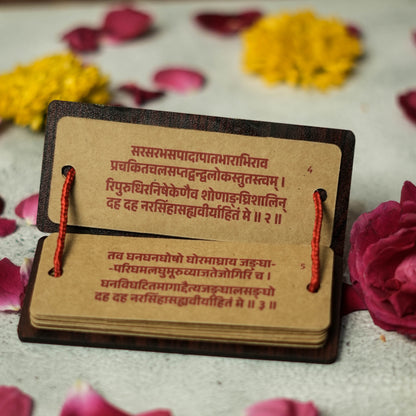 4
सरसरभसपादापातभाराभिराव
प्रचकितचलसप्तद्वन्द्वलोकस्तुतस्त्वम् ।
रिपुरुधिरनिषेकेणैव शोणाङ्घ्रिशालिन्
दह दह नरसिंहासह्यवीर्याहितं मे ॥ २ ॥
5
तव घनघनघोषो घोरमाघ्राय जङ्घा-
-परिघमलघुमूरुव्याजतेजोगिरिं च ।
घनविघटितमागाद्दैत्यजङ्घालसङ्घो
दह दह नरसिंहासह्यवीर्याहितं मे ॥ ३ ॥